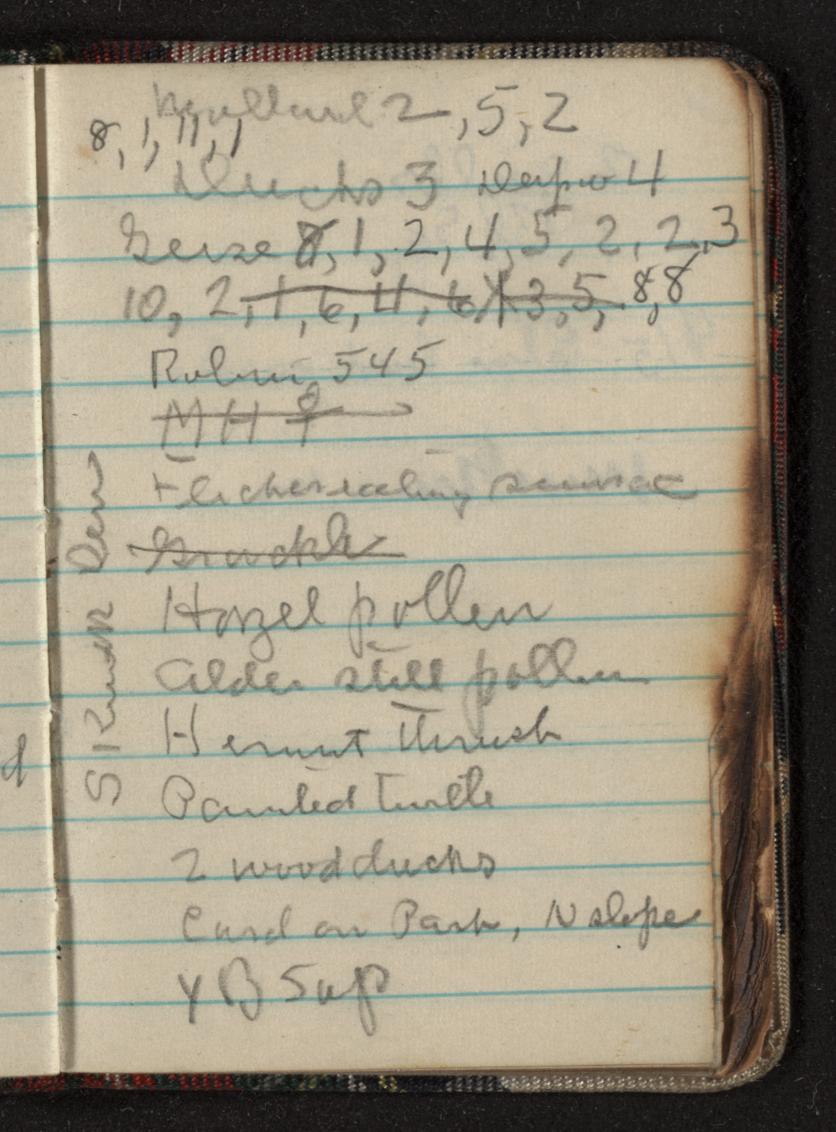 Mallard 2, 5, 2
8, 1, 11, 1
Ducks 3 4
Geese 8, 1, 2, 4, 5, 2, 2, 3
10, 2, 1, 6, 11, 6, 3, 5, 8, 8
Robin 545
MH ♀
Flicker eating sumac
Grackle
Hazel pollen
Alder still pollen
Hermit Thrush
Painted Turtle
2 wood ducks
Card on Park, N slope
YB Sap
Skunk Den
d